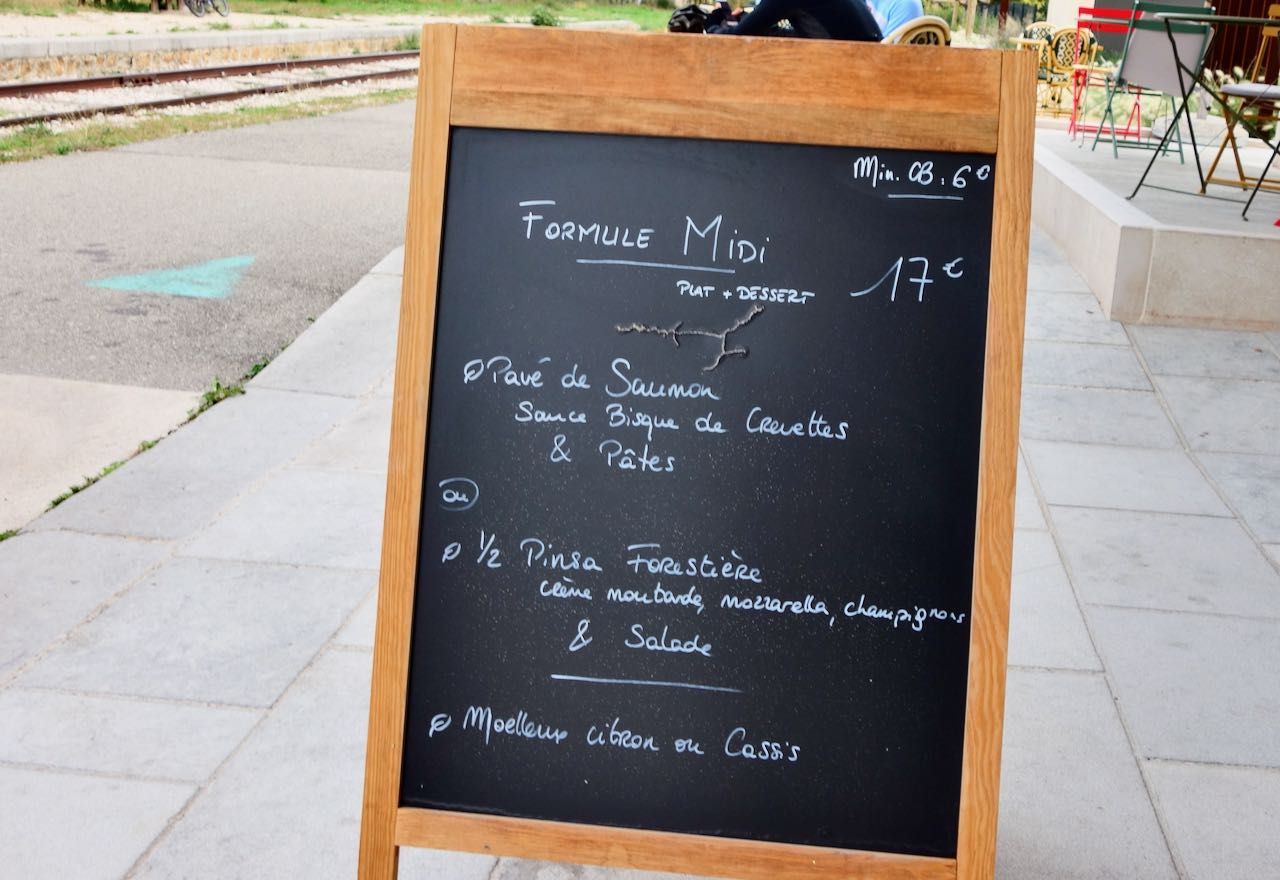 Min. CB : 6€
FORMULE MIDI
17€
PLAT + DESSERT
Pavé de Saumon
Sauce Bisque de Crevettes
& Pâtes
ou
1/2 Pinsa Forestière
crème moutarde, mozzarella, champignons
& Salade
Moelleux citron ou Cassis